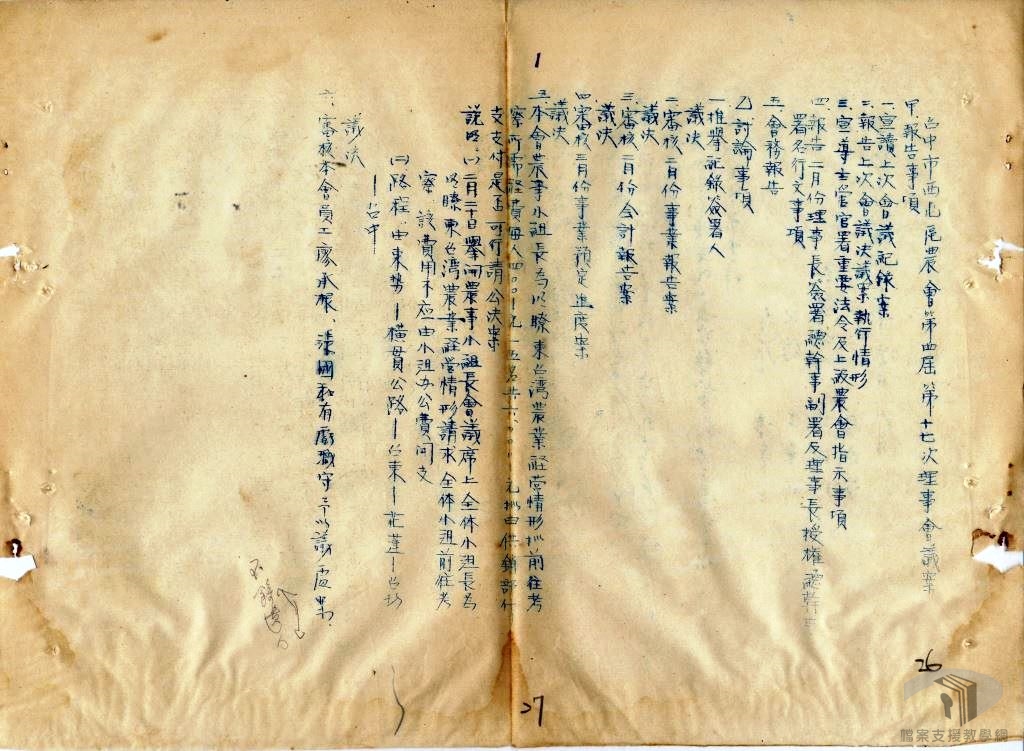 台中市西屯農會第四屆第十七次理事會議案
甲、報告事項
一、宣讀上次會議記錄案
二、報告上次會議決議案執行情形
三、宣導主管官署重要法令及上級農會指示事項
四、報告二月份理事長簽署總幹事副署及理事長授權總幹事
署名行文事項
五、會務報告
乙、討論事項
一、推舉記錄簽署人
議決
二、審核二月份事業報告案
議決
三、審核二月份會計報告案
議決
四、審核三月份事業預定進度案
議決
五、本會農事小組長為以瞭東台湾農業経営情形拟前往考
察所需経費每人四〇〇-元一五名共六、〇〇〇元拟由供銷部
支支付是否可行請公決案
說明：㈠二月二十日舉開農事小組長會議席上全体小組長為
以瞭東台湾農業経営情形請求全体小組前往考
察、該費用不应由小組办公費開支
㈡路程：由東勢—橫貫公路—台東—花蓮—
—台中
議決
六、審核本會員工廖承根、張國和有廢職守予以議處案
1
26
27
檔案支援教學網